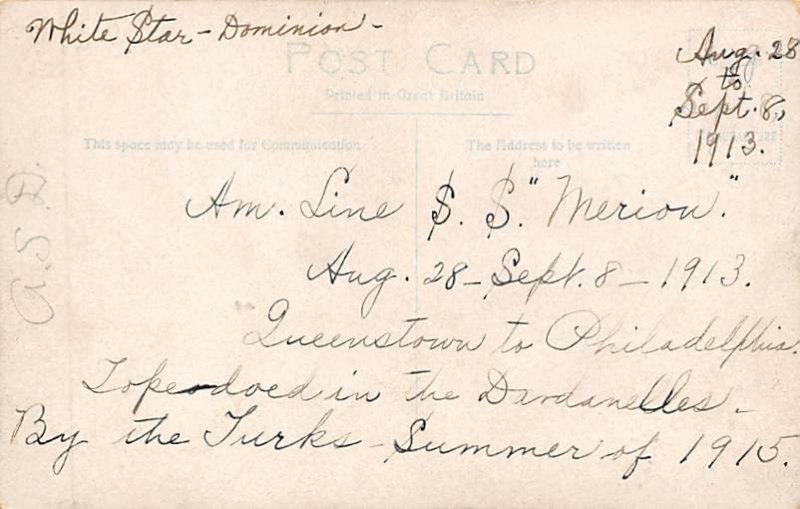 White Star - Dominion -
POST CARD
Printed in Great Britain
Aug. 28
to
Sept. 8,
1913.
This space may be used for Communication
The Address to be written
here
Am. Line S. S. "Merion."
Aug. 28 - Sept. 8 - 1913.
Queenstown to Philadelphia.
Topedoed in the Dardanelles -
By the Turks - Summer of 1915.